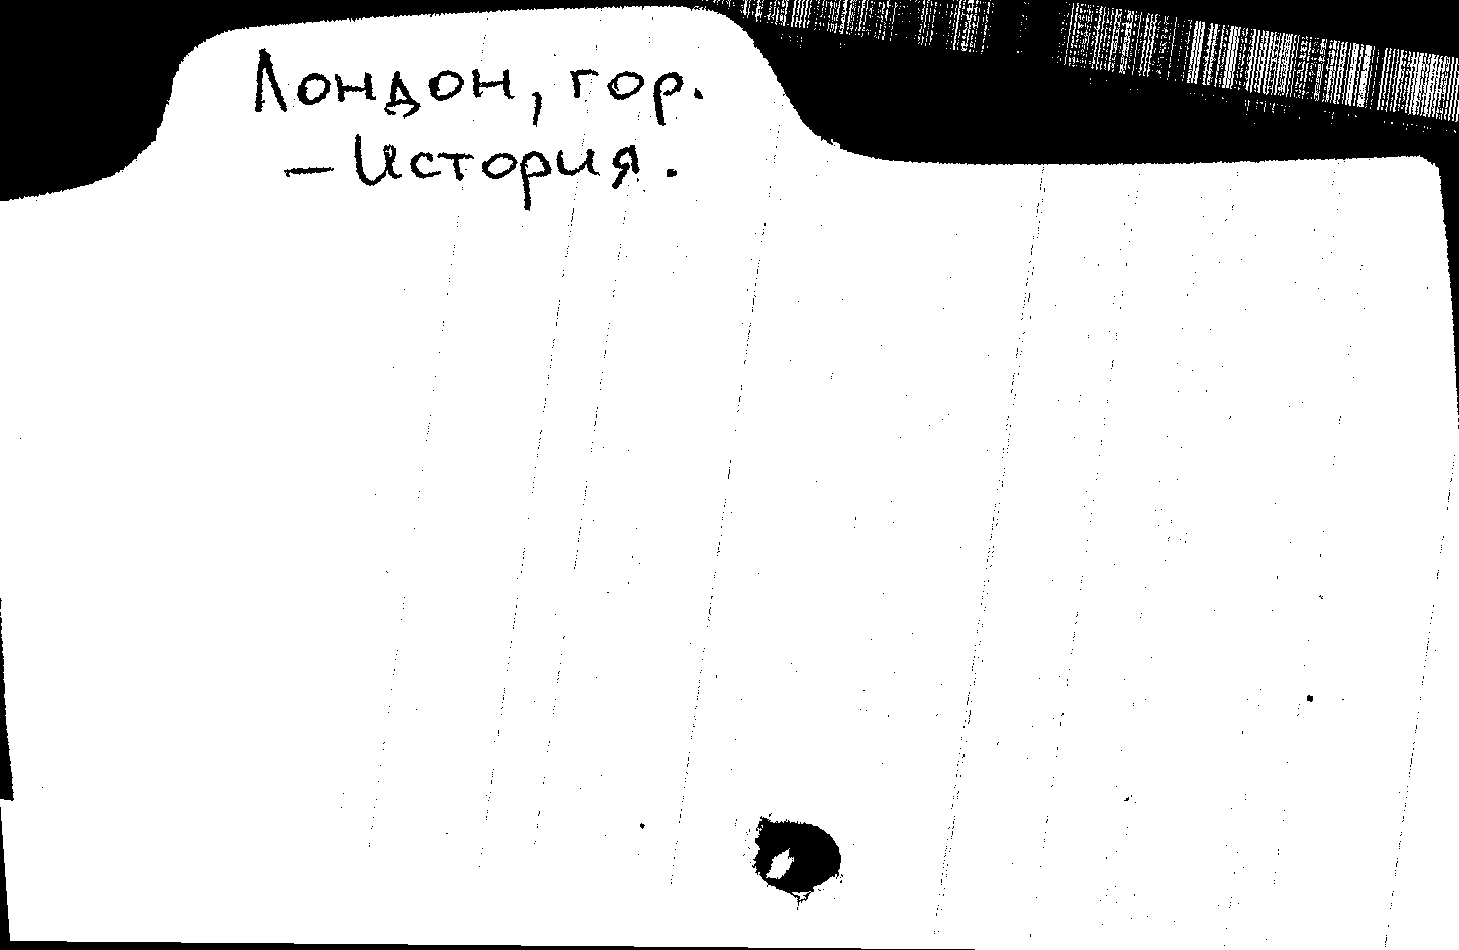 Лондон, гор.
– История.